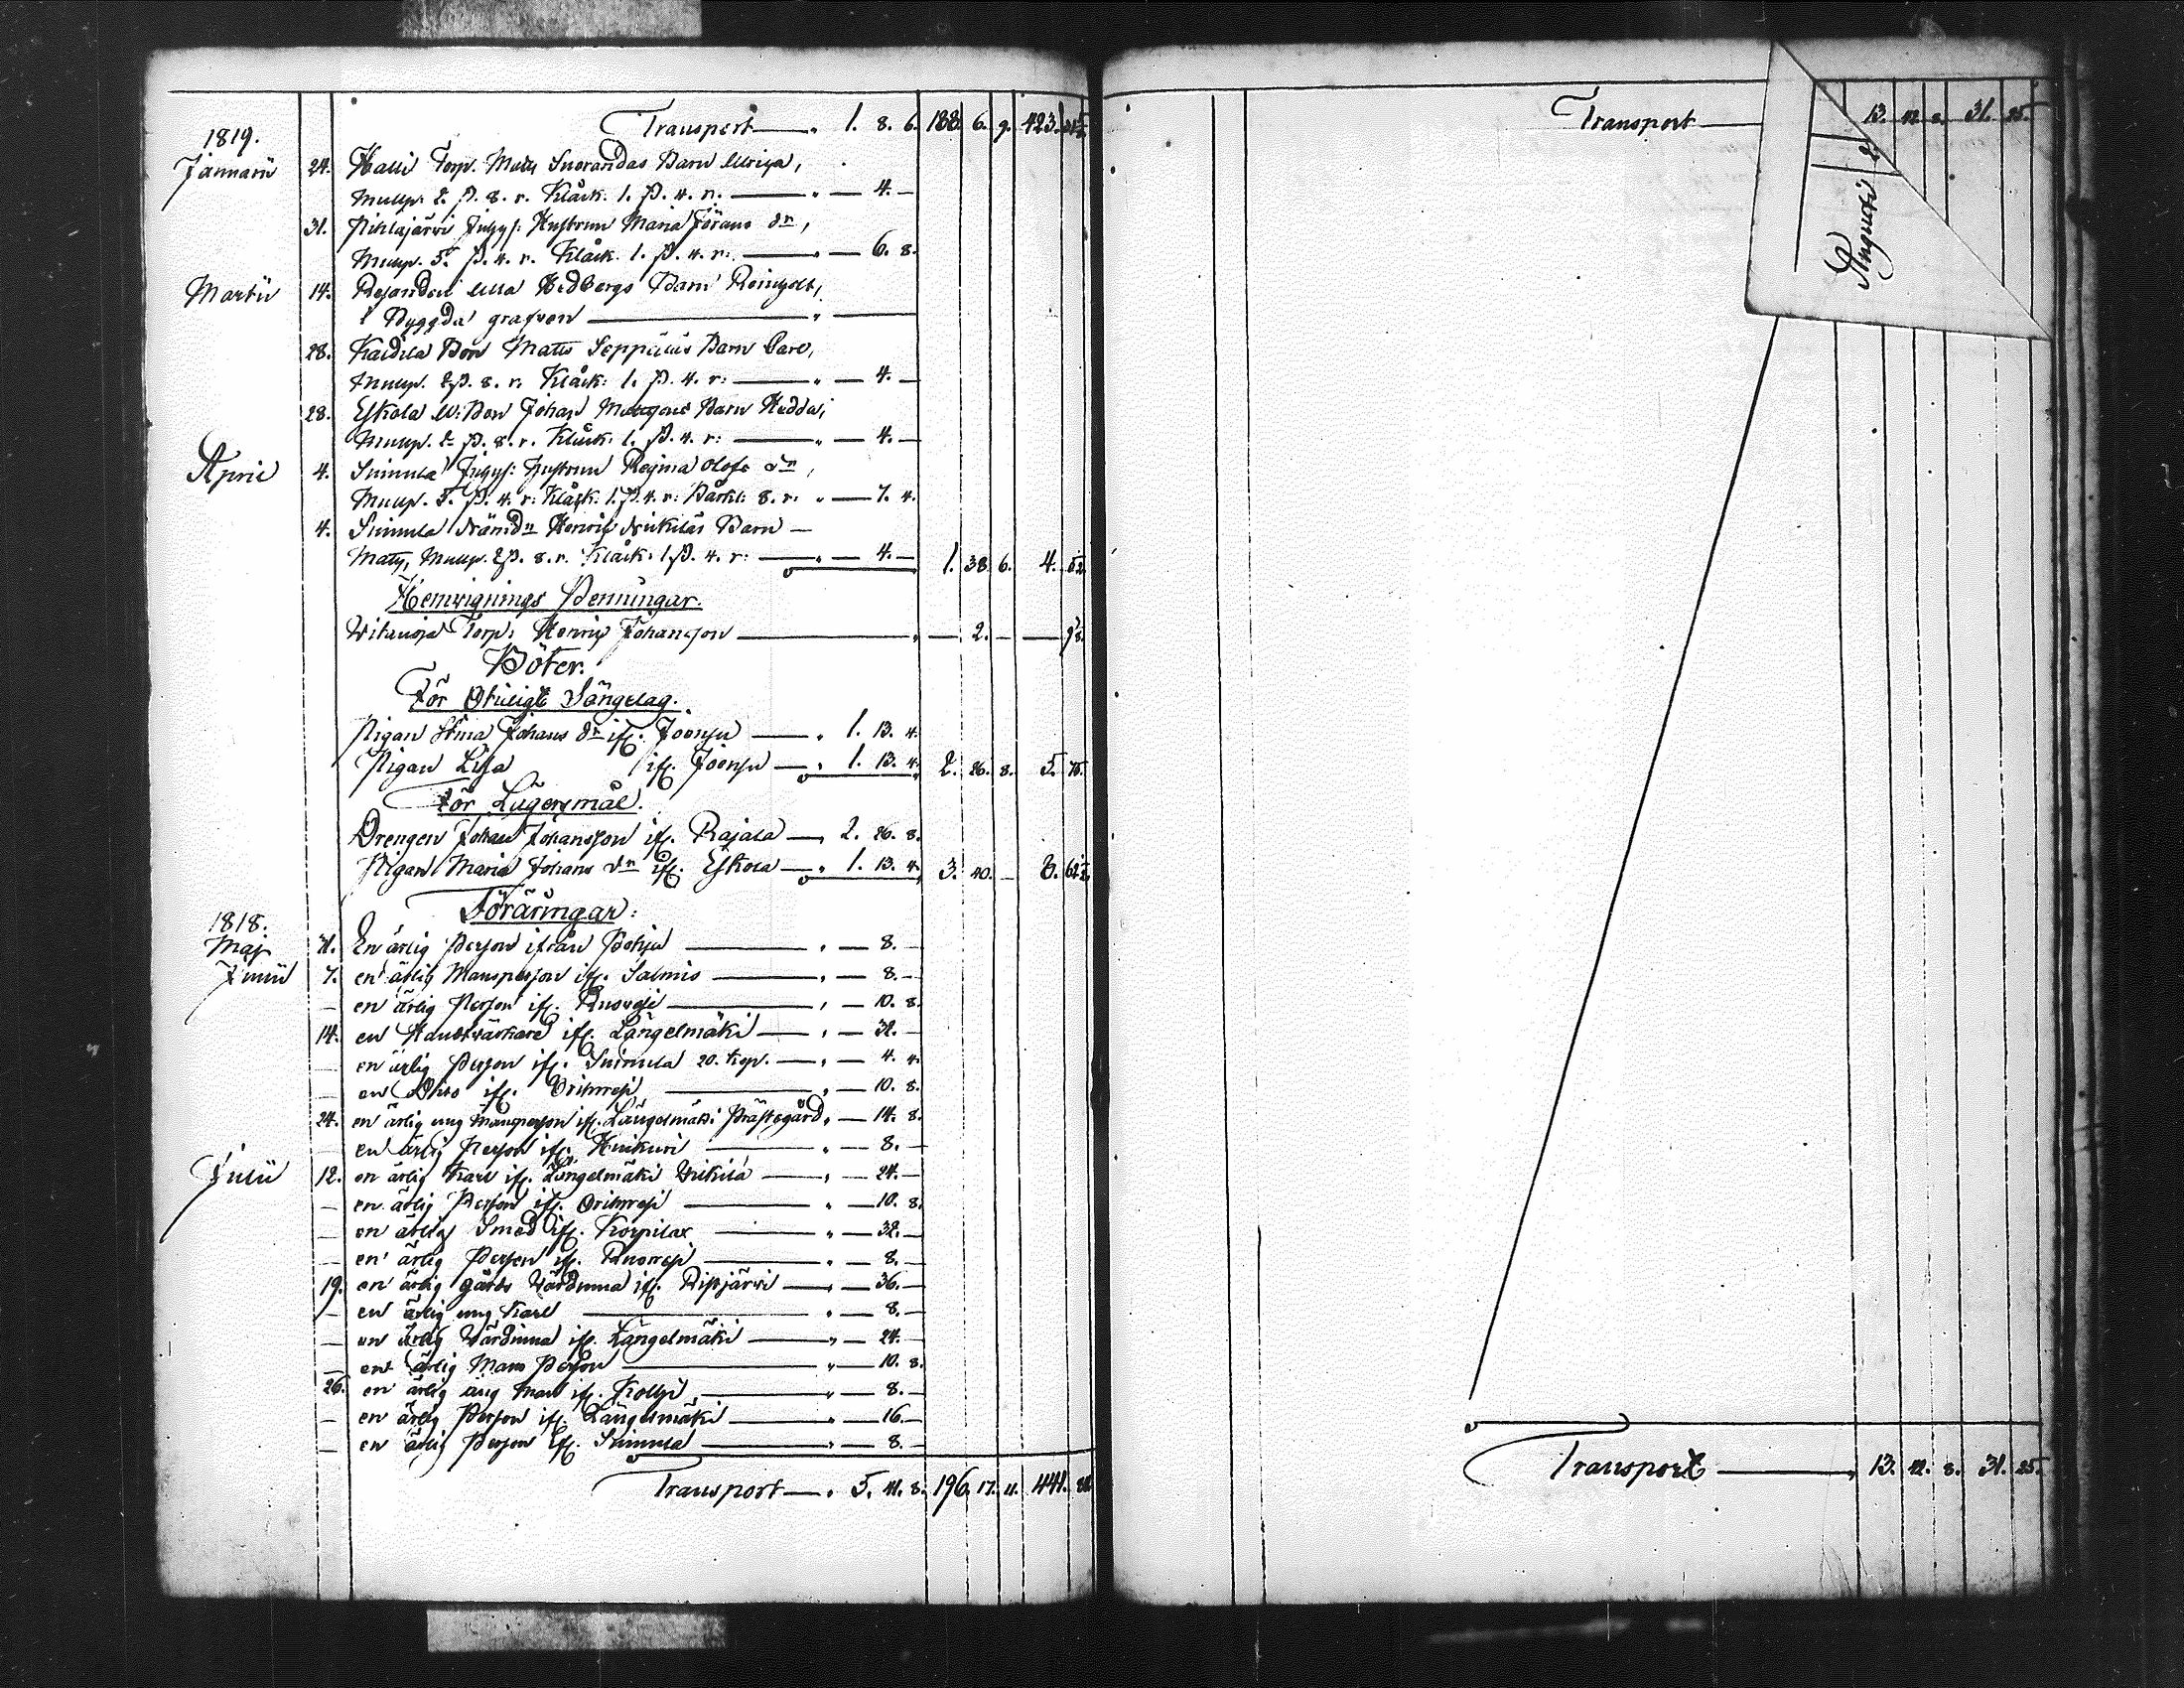 Transport — „ 1. 8. 6. 188. 6. 9. 423.
1819.
Januarii 24. Halli Torp. Matts Barn Ulrica,
Mullp. 2. β. 8. r. Klåck. 1. β. 4. r. — „ — 4. —
31. Pihlajärvi Hustrun Maria Görans dr,
Mullp. 5. β. 4. r. Klåck. 1. β. 4. r. — „ — 6. 8.
Martii 14. Ulla Hedbergs Barn
i Byggda grafven — „ —
28. Kaidila Bon Matts Seppäläs Barn Carl,
Mullp. 2 β. 8. r. Klåck: 1. β. 4. r: — „ — 4. —
28. Eskola Bon Johan Barn Hedda,
Mullp. 2. β. 8. r. Klåck. 1. β. 4. r: — „ — 4. —
April 4. Sinnula Hustrun Regina Olofs dr,
Mullp. 5. β. 4. r: Klåck. 1. β. 4. r: Bårkl: 8. r. „ — 7. 4.
4. Sinnula Nämdn Henric Barn —
Matts, Mullp. 2 β. 8. r. Klåck. 1. β. 4. r: — „ — 4. — 1. 38. 6. 4.
Hemvignings Penningar.
Torp. Henric Johansson — „ — 2. —
Böter.
För Otiligt Sängelag.
Pigan Stina Johans dr ifr. Joensu — „ 1. 13. 4.
Pigan Lisa ifr. Joensu — „ 1. 13. 4. 2. 26. 8. 5. 75.
För Lägersmål.
Drengen Johan Johansson ifr. Rajala — „ 2. 26. 8.
Pigan Maria Johans dr ifr. Eskola — „ 1. 13. 4. 3. 40. — 8. 62½
Föräringar:
1818.
Maj 31. En ärlig Person ifrån Pohja — „ — 8. —
Junii 7. en ärlig Mansperson ifr. Salmis — „ — 8. —
— en ärlig Person ifr. Ruovesi — „ — 10. 8.
14. en Handtvärkare ifr. Längelmäki — „ — 32. —
— en ärlig Person ifr. Sinnula 20. kop. — „ — 4. 4.
— en Dito ifr. Orihvesi — „ — 10. 8.
24. en ärlig ung Mansperson ifr. Längelmäki Prästegård „ — 14. 8.
en ärlig Person ifr. — „ — 8. —
Julii 12. en ärlig Karl ifr. Längelmäki — „ — 24. —
— en ärlig Person ifr. Orihvesi — „ — 10. 8.
— en ärlig Smed ifr. Korpilax — „ — 32. —
— en ärlig Person ifr. Ruovesi — „ — 8. —
19. en ärlig gårds Värdinna ifr. — „ — 36. —
— en ärlig ung Karl — „ — 8. —
— en ärlig Värdinna ifr. Längelmäki — „ — 24. —
— en ärlig Mans Person — „ — 10. 8.
26. en ärlig ung Man ifr. — „ — 8. —
— en ärlig Person ifr. Längelmäki — „ — 16. —
— en ärlig Person ifr. Sinnula — „ — 8. —
Transport — „ 5. 41. 8. 196. 17. 11. 441.
Transport — 13. 42. 8. 31. 25.
Augusti 2
Transport — „ 13. 42. 8. 31. 25.